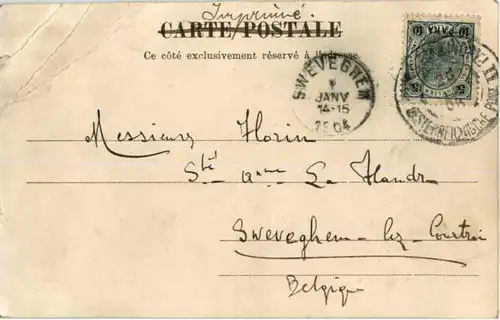 Imprimé.
CARTE POSTALE
Ce côté exclusivement réservé à l'adresse.
10 PARA 10
SWEVEGHEM
1
JANV
14-15
1904
OESTERREICHISCHE POST
Messieurs Florin
Sté a^me La Flandre
Sweveghem-lez-Courtrai
Belgique